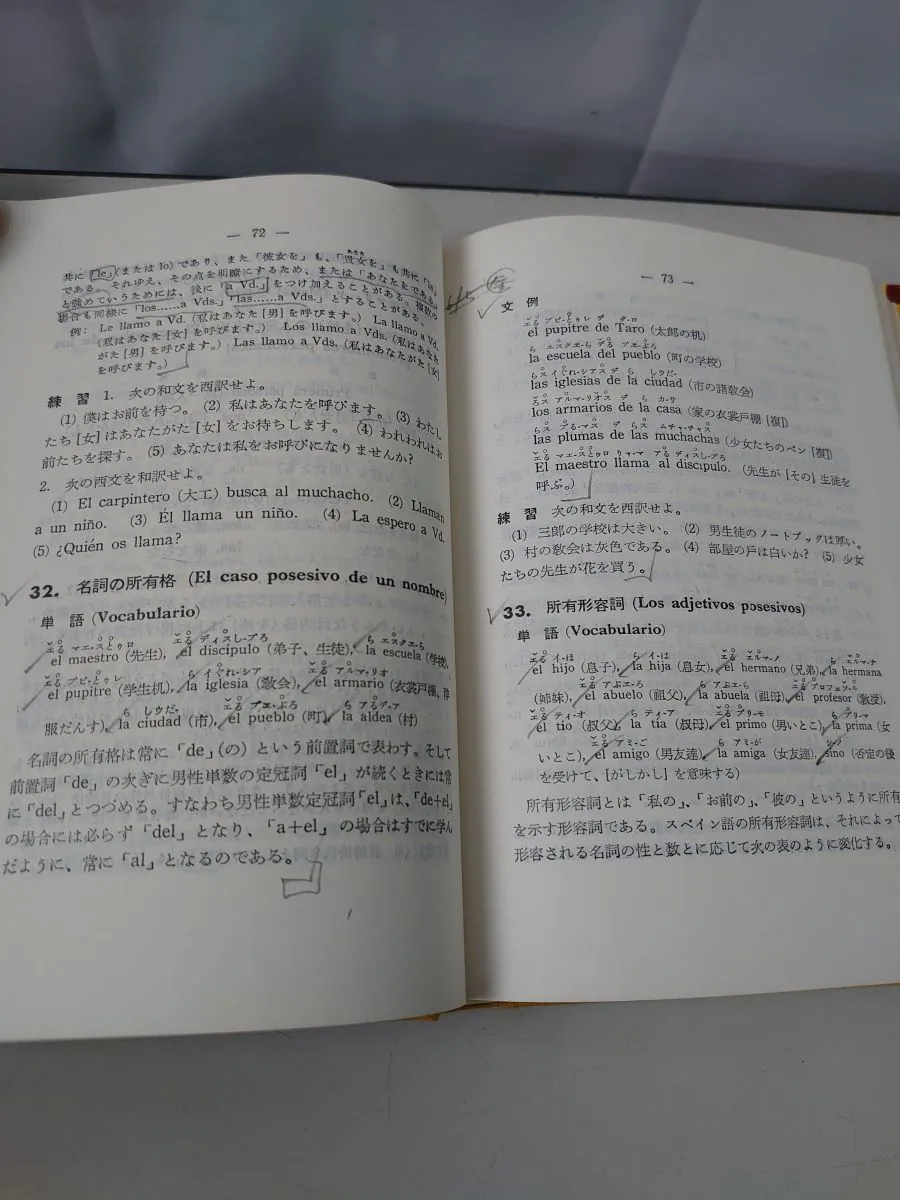 — 72 —
共に「le」(または lo) であり、また「彼女を」も、「貴女を」も共に「la」
である。それゆえ、その点を明瞭にするため、または「あなたをである」
と強めていうためには、後に「a Vd.」をつけ加えることがある。複数の
場合も同様に「los……a Vds.」「las……a Vds.」とすることがある。
例: Le llamo a Vd. (私はあなた [男] を呼びます。) La llamo a Vd.
(私はあなた [女] を呼びます。) Los llamo a Vds. (私はあなた
がた [男] を呼びます。) Las llamo a Vds. (私はあなたがた [女]
を呼びます。)
練習 1. 次の和文を西訳せよ。
(1) 僕はお前を待つ。 (2) 私はあなたを呼びます。 (3) わたし
たち [女] はあなたがた [女] をお待ちします。 (4) われわれはお
前たちを探す。 (5) あなたは私をお呼びになりませんか?
2. 次の西文を和訳せよ。
(1) El carpintero (大工) busca al muchacho. (2) Llaman
a un niño. (3) Él llama un niño. (4) La espero a Vd.
(5) ¿Quién os llama?
32. 名詞の所有格 (El caso posesivo de un nombre)
単語 (Vocabulario)
el maestro (先生), el discípulo (弟子、生徒), la escuela (学校),
el pupitre (学生机), la iglesia (教会), el armario (衣裳戸棚、洋
服だんす), la ciudad (市), el pueblo (町), la aldea (村)
名詞の所有格は常に「de」(の) という前置詞で表わす。そして
前置詞「de」の次ぎに男性単数の定冠詞「el」が続くときには常
に「del」とつづめる。すなわち男性単数定冠詞「el」は、「de+el」
の場合には必らず「del」となり、「a+el」の場合はすでに学ん
だように、常に「al」となるのである。
— 73 —
文例
el pupitre de Taro (太郎の机)
la escuela del pueblo (町の学校)
las iglesias de la ciudad (市の諸教会)
los armarios de la casa (家の衣裳戸棚 [複])
las plumas de las muchachas (少女たちのペン [複])
El maestro llama al discípulo. (先生が [その] 生徒を
呼ぶ。)
練習 次の和文を西訳せよ。
(1) 三郎の学校は大きい。 (2) 男生徒のノートブックは厚い。
(3) 村の教会は灰色である。 (4) 部屋の戸は白いか? (5) 少女
たちの先生が花を買う。
33. 所有形容詞 (Los adjetivos posesivos)
単語 (Vocabulario)
el hijo (息子), la hija (息女), el hermano (兄弟), la hermana
(姉妹), el abuelo (祖父), la abuela (祖母), el profesor (教授),
el tío (叔父), la tía (叔母), el primo (男いとこ), la prima (女
いとこ), el amigo (男友達), la amiga (女友達), sino (否定の後
を受けて、[がしかし] を意味する)
所有形容詞とは「私の」、「お前の」、「彼の」というように所有
を示す形容詞である。スペイン語の所有形容詞は、それによって
形容される名詞の性と数とに応じて次の表のように変化する。